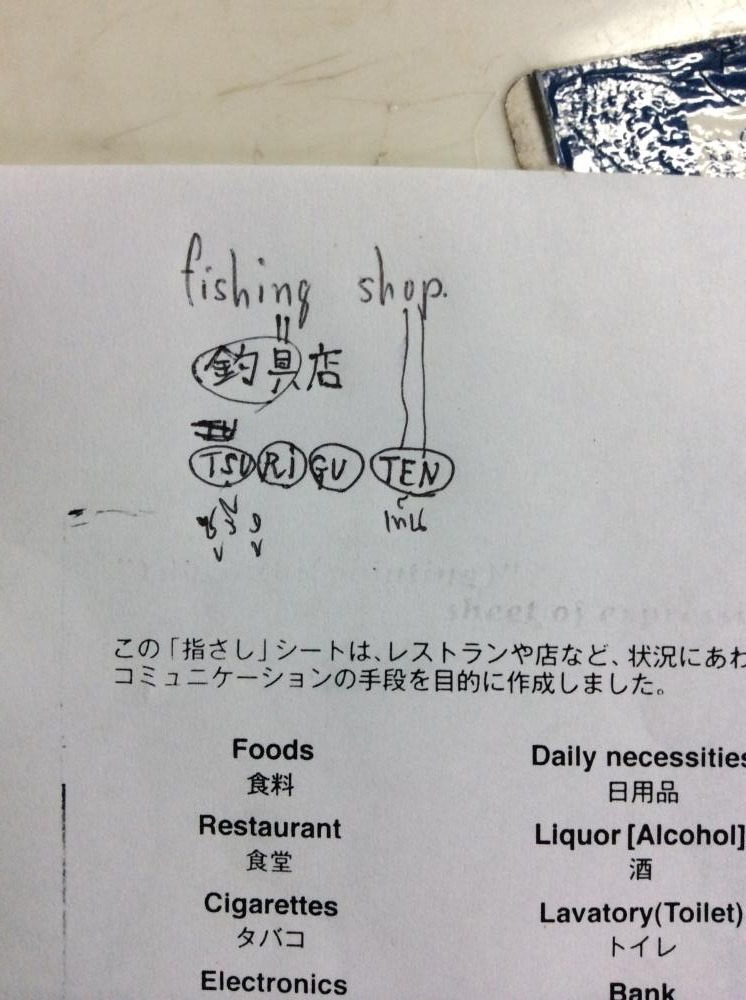 fishing shop.
釣具店
TSU RI GU TEN
この「指さし」シートは、レストランや店など、状況にあわ
コミュニケーションの手段を目的に作成しました。
Foods Daily necessities
食料 日用品
Restaurant Liquor [Alcohol]
食堂 酒
Cigarettes Lavatory(Toilet)
タバコ トイレ
Electronics Bank